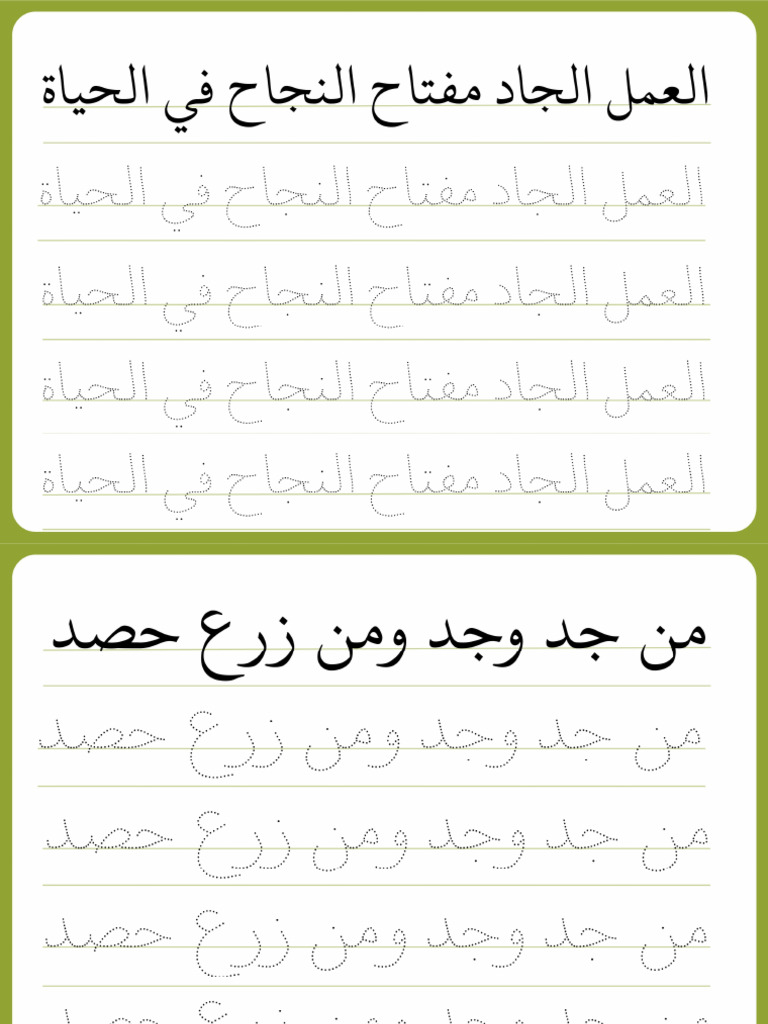 العمل الجاد مفتاح النجاح في الحياة
العمل الجاد مفتاح النجاح في الحياة
العمل الجاد مفتاح النجاح في الحياة
العمل الجاد مفتاح النجاح في الحياة
العمل الجاد مفتاح النجاح في الحياة
من جد وجد ومن زرع حصد
من جد وجد ومن زرع حصد
من جد وجد ومن زرع حصد
من جد وجد ومن زرع حصد